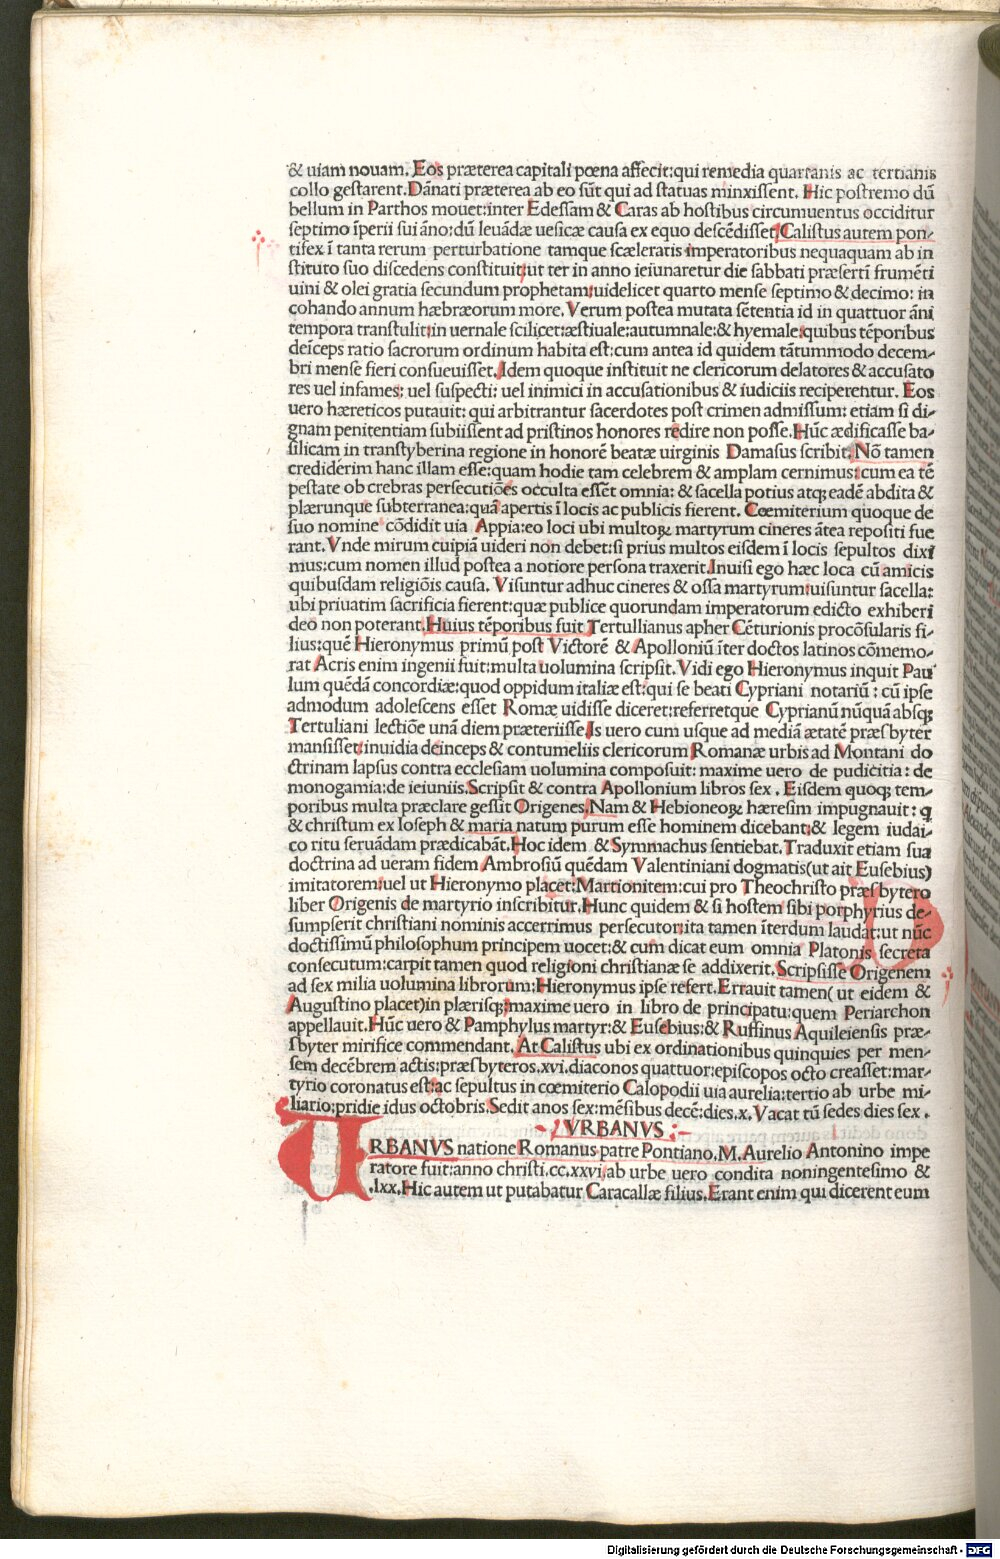 & uiam nouam. Eos præterea capitali pœna affecit: qui remedia quartanis ac tertianis
collo gestarent. Dãnati præterea ab eo sũt qui ad statuas minxissent. Hic postremo dũ
bellum in Parthos mouet: inter Edessam & Caras ab hostibus circumuentus occiditur
septimo ĩperii sui ãno: dũ leuãdæ uesicæ causa ex equo descẽdisset. Calistus autem pon-
tifex ĩ tanta rerum perturbatione tamque scæleratis imperatoribus nequaquam ab in
stituto suo discedens constituit: ut ter in anno ieiunaretur die sabbati præsertĩ frumẽti
uini & olei gratia secundum prophetam: uidelicet quarto mense septimo & decimo: in
cohando annum hæbræorum more. Verum postea mutata sẽtentia id in quattuor ãni
tempora transtulit: in uernale scilicet: æstiuale: autumnale: & hyemale: quibus tẽporibus
deĩceps ratio sacrorum ordinum habita est: cum antea id quidem tãtummodo decem-
bri mense fieri consueuisset. Idem quoque instituit ne clericorum delatores & accusato
res uel infames: uel suspecti: uel inimici in accusationibus & iudiciis reciperentur. Eos
uero hæreticos putauit: qui arbitrantur sacerdotes post crimen admissum: etiam si di-
gnam penitentiam subiissent ad pristinos honores redire non posse. Hũc ædificasse ba-
silicam in transtyberina regione in honorẽ beatæ uirginis Damasus scribit. Nõ tamen
crediderim hanc illam esse: quam hodie tam celebrem & amplam cernimus: cum ea tẽ
pestate ob crebras persecutiões occulta essẽt omnia: & sacella potius atqꝫ eadẽ abdita &
plærunque subterranea: quã apertis ĩ locis ac publicis fierent. Cœmiterium quoque de
suo nomine cõdidit uia Appia: eo loci ubi multoꝝ martyrum cineres ãtea repositi fue
rant. Vnde mirum cuipiã uideri non debet: si prius multos eisdem ĩ locis sepultos dixi
mus: cum nomen illud postea a notiore persona traxerit. Inuisi ego hæc loca cũ amicis
quibusdam religiõis causa. Visuntur adhuc cineres & ossa martyrum: uisuntur sacella:
ubi priuatim sacrificia fierent: quæ publice quorundam imperatorum edicto exhiberi
deo non poterant. Huius tẽporibus fuit Tertullianus apher Cẽturionis procõsularis fi-
lius: quẽ Hieronymus primũ post Victorẽ & Apolloniũ ĩter doctos latinos cõmemo-
rat Acris enim ingenii fuit: multa uolumina scripsit. Vidi ego Hieronymus inquit Pau
lum quẽdã concordiæ: quod oppidum italiæ est: qui se beati Cypriani notariũ: cũ ipse
admodum adolescens esset Romæ uidisse diceret: referretque Cyprianũ nũquã absqꝫ
Tertuliani lectiõe unã diem præteriisse. Is uero cum usque ad mediã ætatẽ præsbyter
mansisset: inuidia deinceps & contumeliis clericorum Romanæ urbis ad Montani do
ctrinam lapsus contra ecclesiam uolumina composuit: maxime uero de pudicitia: de
monogamia: de ieiuniis. Scripsit & contra Apollonium libros sex. Eisdem quoqꝫ tem-
poribus multa præclare gessit Origenes. Nam & Hebioneoꝝ hæresim impugnauit: ꝗ
& christum ex Ioseph & maria natum purum esse hominem dicebant: & legem iudai-
co ritu seruãdam prædicabãt. Hoc idem & Symmachus sentiebat. Traduxit etiam sua
doctrina ad ueram fidem Ambrosiũ quẽdam Valentiniani dogmatis (ut ait Eusebius)
imitatorem: uel ut Hieronymo placet: Martionitem: cui pro Theochristo præsbytero
liber Origenis de martyrio inscribitur. Hunc quidem & si hostem sibi porphyrius de-
sumpserit christiani nominis accerrimus persecutor: ita tamen ĩterdum laudat: ut nũc
doctissimũ philosophum principem uocet: & cum dicat eum omnia Platonis secreta
consecutum: carpit tamen quod religioni christianæ se addixerit. Scripsisse Origenem
ad sex milia uolumina librorum: Hieronymus ipse refert. Errauit tamen (ut eidem &
Augustino placet) in plærisqꝫ: maxime uero in libro de principatu: quem Periarchon
appellauit. Hũc uero & Pamphylus martyr: & Eusebius: & Ruffinus Aquileiensis præ-
sbyter mirifice commendant. At Calistus ubi ex ordinationibus quinquies per men-
sem decẽbrem actis: præsbyteros .xvi. diaconos quattuor: episcopos octo creasset: mar-
tyrio coronatus est: ac sepultus in cœmiterio Calopodii uia aurelia: tertio ab urbe mi-
liario: pridie idus octobris. Sedit anos sex: mẽsibus decẽ: dies .x. Vacat tũ sedes dies sex.
VRBANVS:
URBANVS natione Romanus patre Pontiano. M. Aurelio Antonino impe
ratore fuit: anno christi .cc.xxvi. ab urbe uero condita noningentesimo &
.lxx. Hic autem ut putabatur Caracallæ filius. Erant enim qui dicerent eum
Digitalisierung gefördert durch die Deutsche Forschungsgemeinschaft - DFG